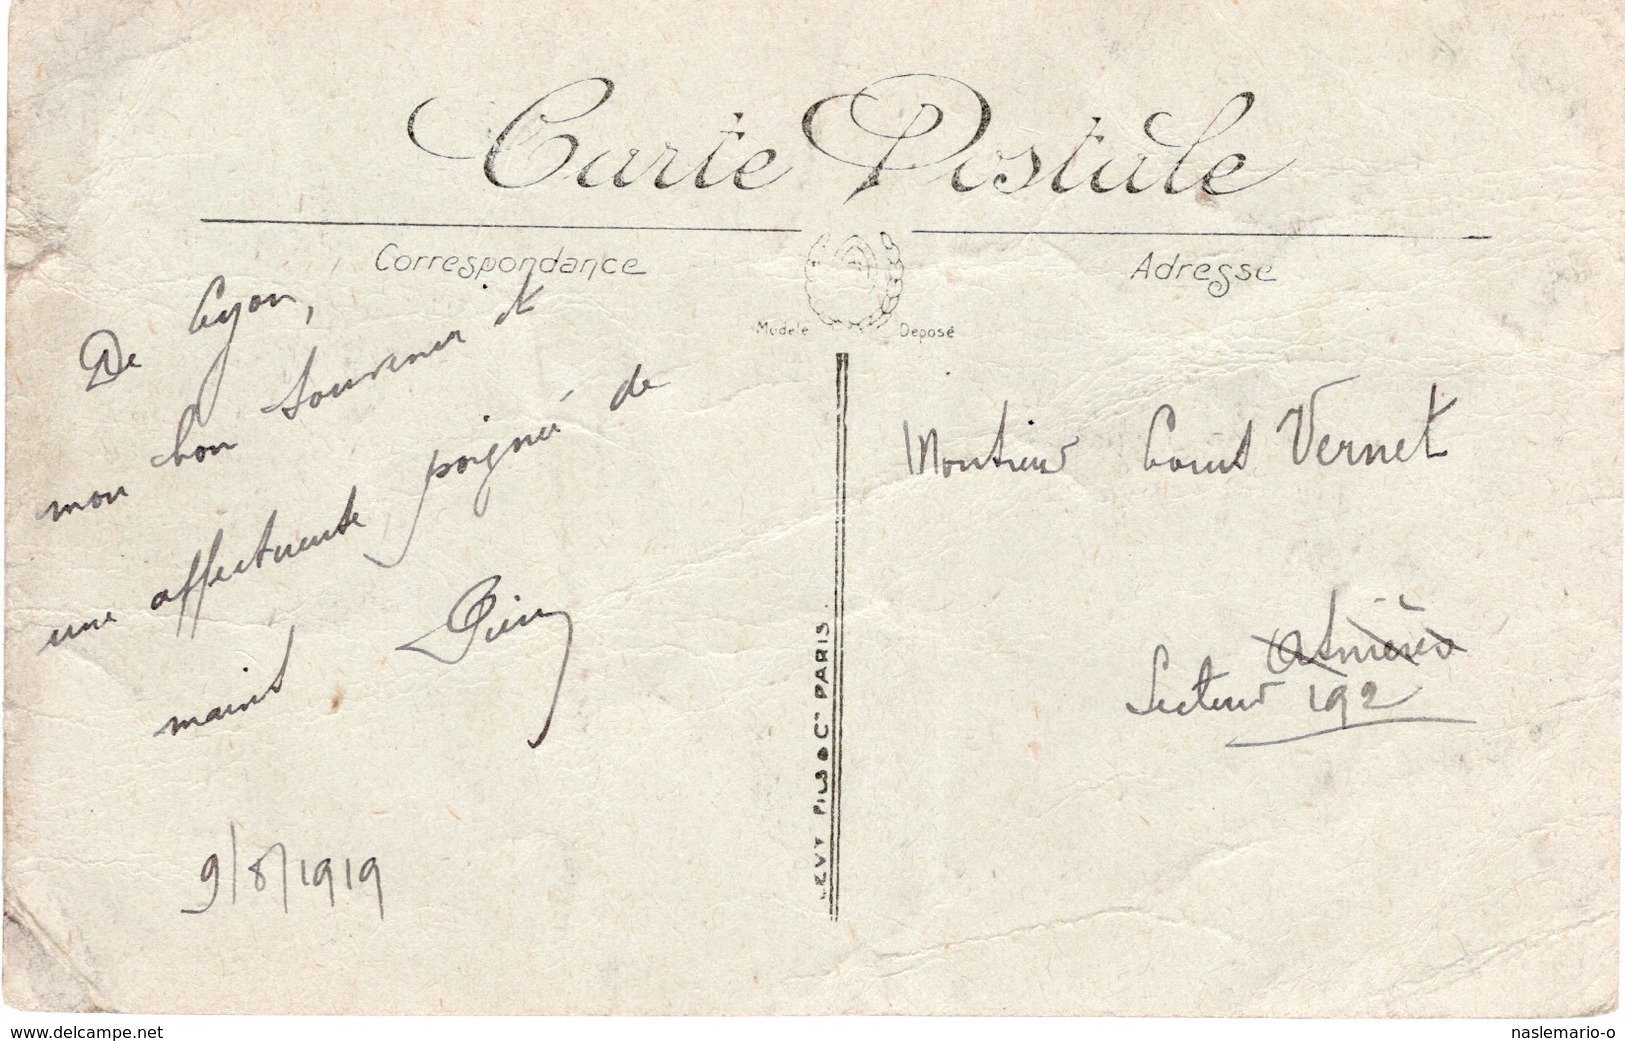 Carte Postale
Correspondance
Adresse
Modèle Déposé
De Lyon,
mon bon souvenir et
une affectueuse poignée de
mains
9/8/1919
LEVY FILS & Cie PARIS.
Monsieur Louis Vernet
Asnières
Secteur 192
www.delcampe.net
naslemario-o